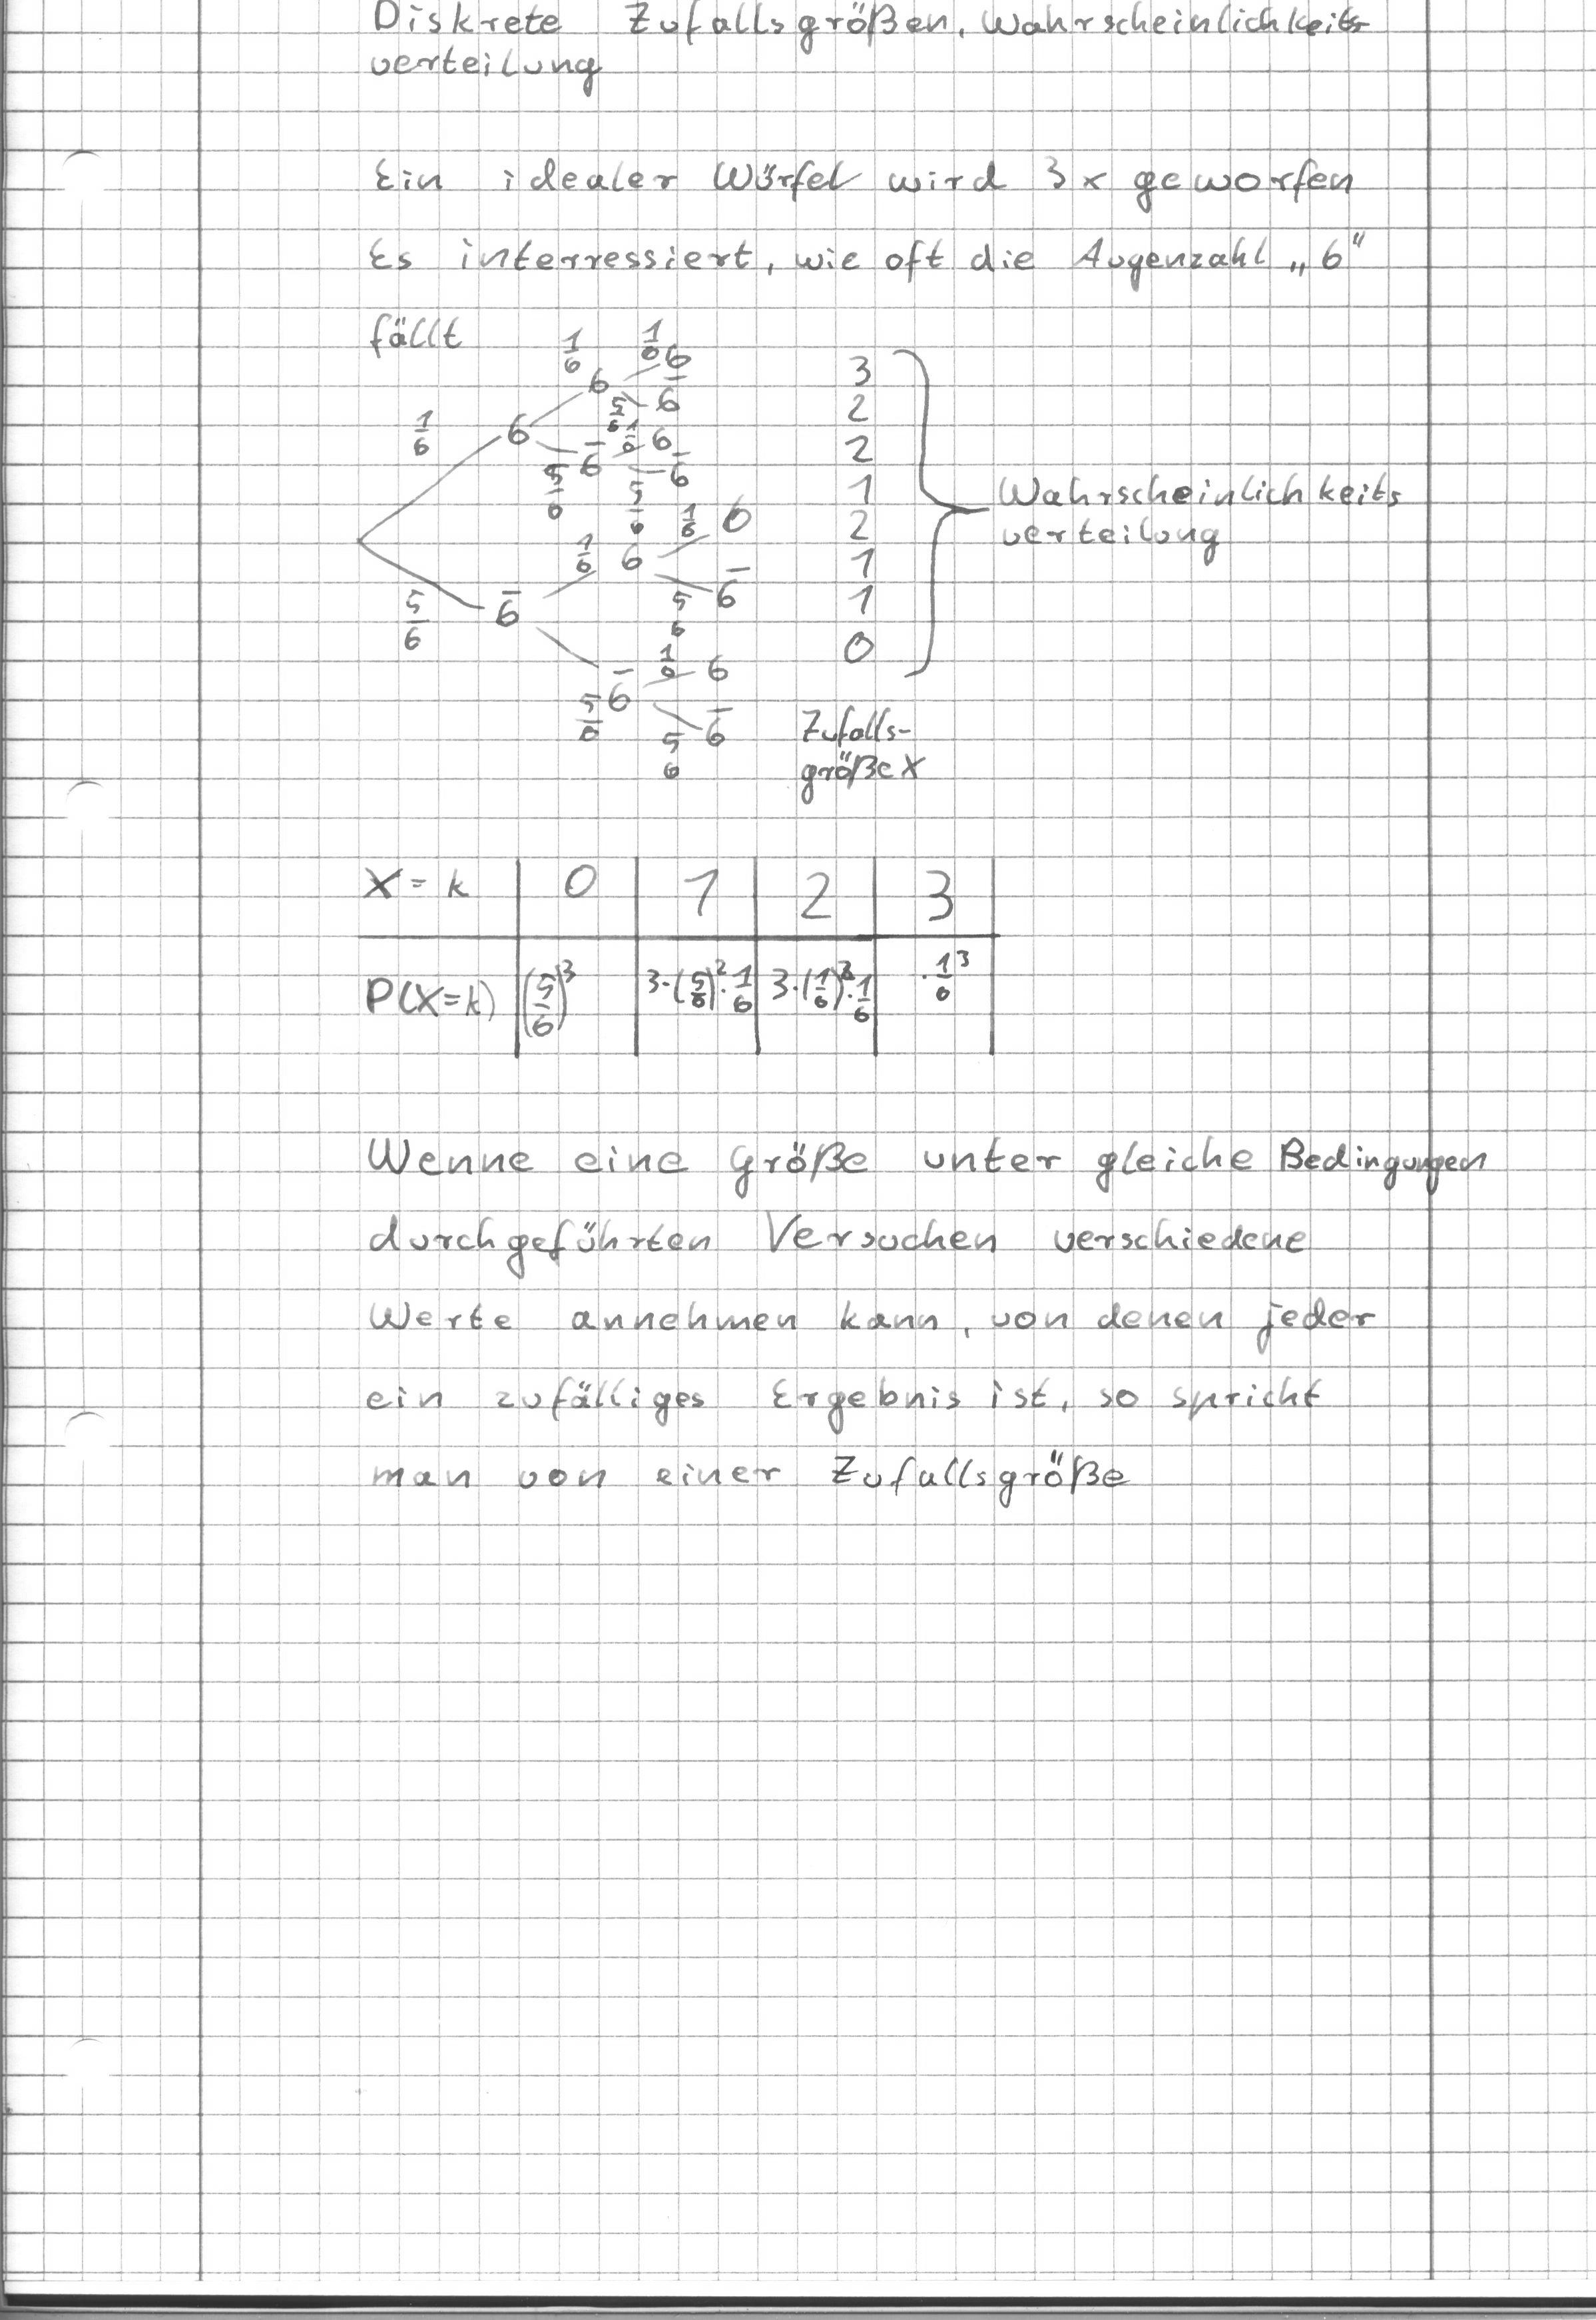 Diskrete Zufallsgrößen, Wahrscheinlichkeits
verteilung
Ein idealer Würfel wird 3x geworfen
Es interressiert, wie oft die Augenzahl „6"
fällt
1/6 1/6 6
6 6̅ 3
1/6 6 5/6 1/6 6 2
5/6 6̅ 5/6 6̅ 2
1
1/6 6 1/6 6 2
5/6 6̅ 5/6 6̅ 1
1
1/6 6 0
5/6 6̅ 5/6 6̅
Wahrscheinlichkeits
verteilung
Zufalls-
größe X
X = k 0 1 2 3
P(X=k) (5/6)³ 3·(5/6)²·1/6 3·(1/6)²·1/6 ·1/6³
Wenne eine Größe unter gleiche Bedingungen
durchgeführten Versuchen verschiedene
Werte annehmen kann, von denen jeder
ein zufälliges Ergebnis ist, so spricht
man von einer Zufallsgröße